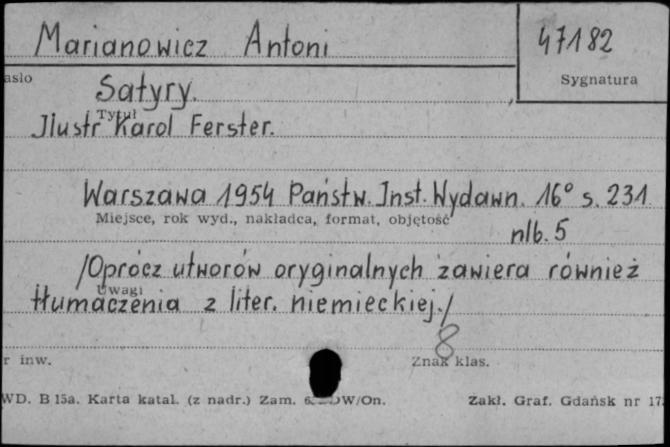 Marianowicz Antoni
47182
asło
Sygnatura
Satyry.
Tytuł
Ilustr Karol Ferster.
Warszawa 1954 Państw. Inst. Wydawn. 16° s. 231
Miejsce, rok wyd., nakładca, format, objętość
nlb. 5
/Oprócz utworów oryginalnych zawiera również
Uwagi
tłumaczenia z liter. niemieckiej./
8
r inw.
Znak klas.
WD. B 15a. Karta katal. (z nadr.) Zam. DW/On.
Zakł. Graf. Gdańsk nr 17